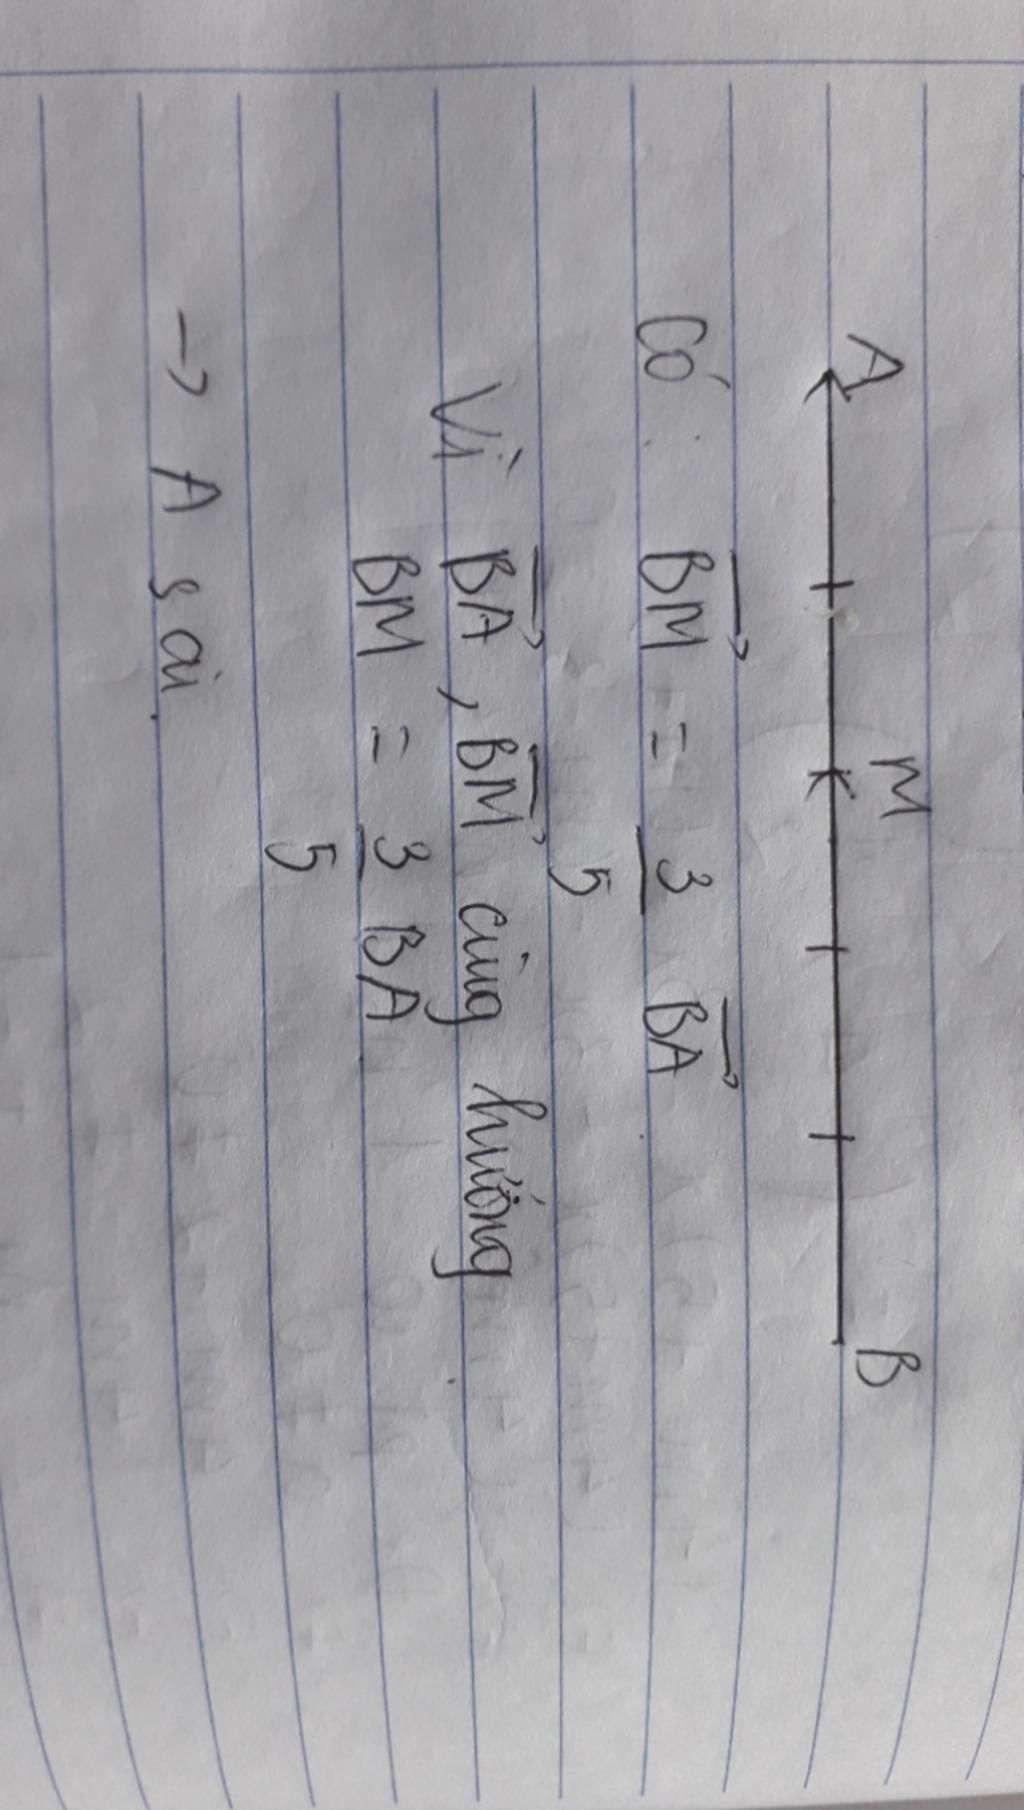 A M B
Có: BM⃗ = 3/5 BA⃗
Vì BA⃗, BM⃗ cùng hướng
BM = 3/5 BA
→ A sai